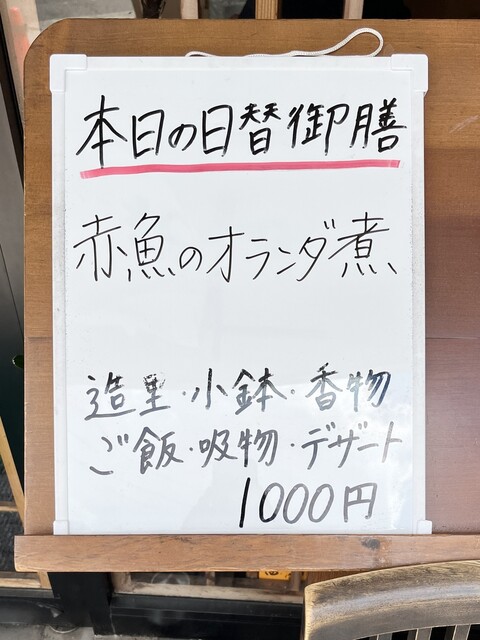 本日の日替御膳
赤魚のオランダ煮
造里・小鉢・香物
ご飯・吸物・デザート
1000円